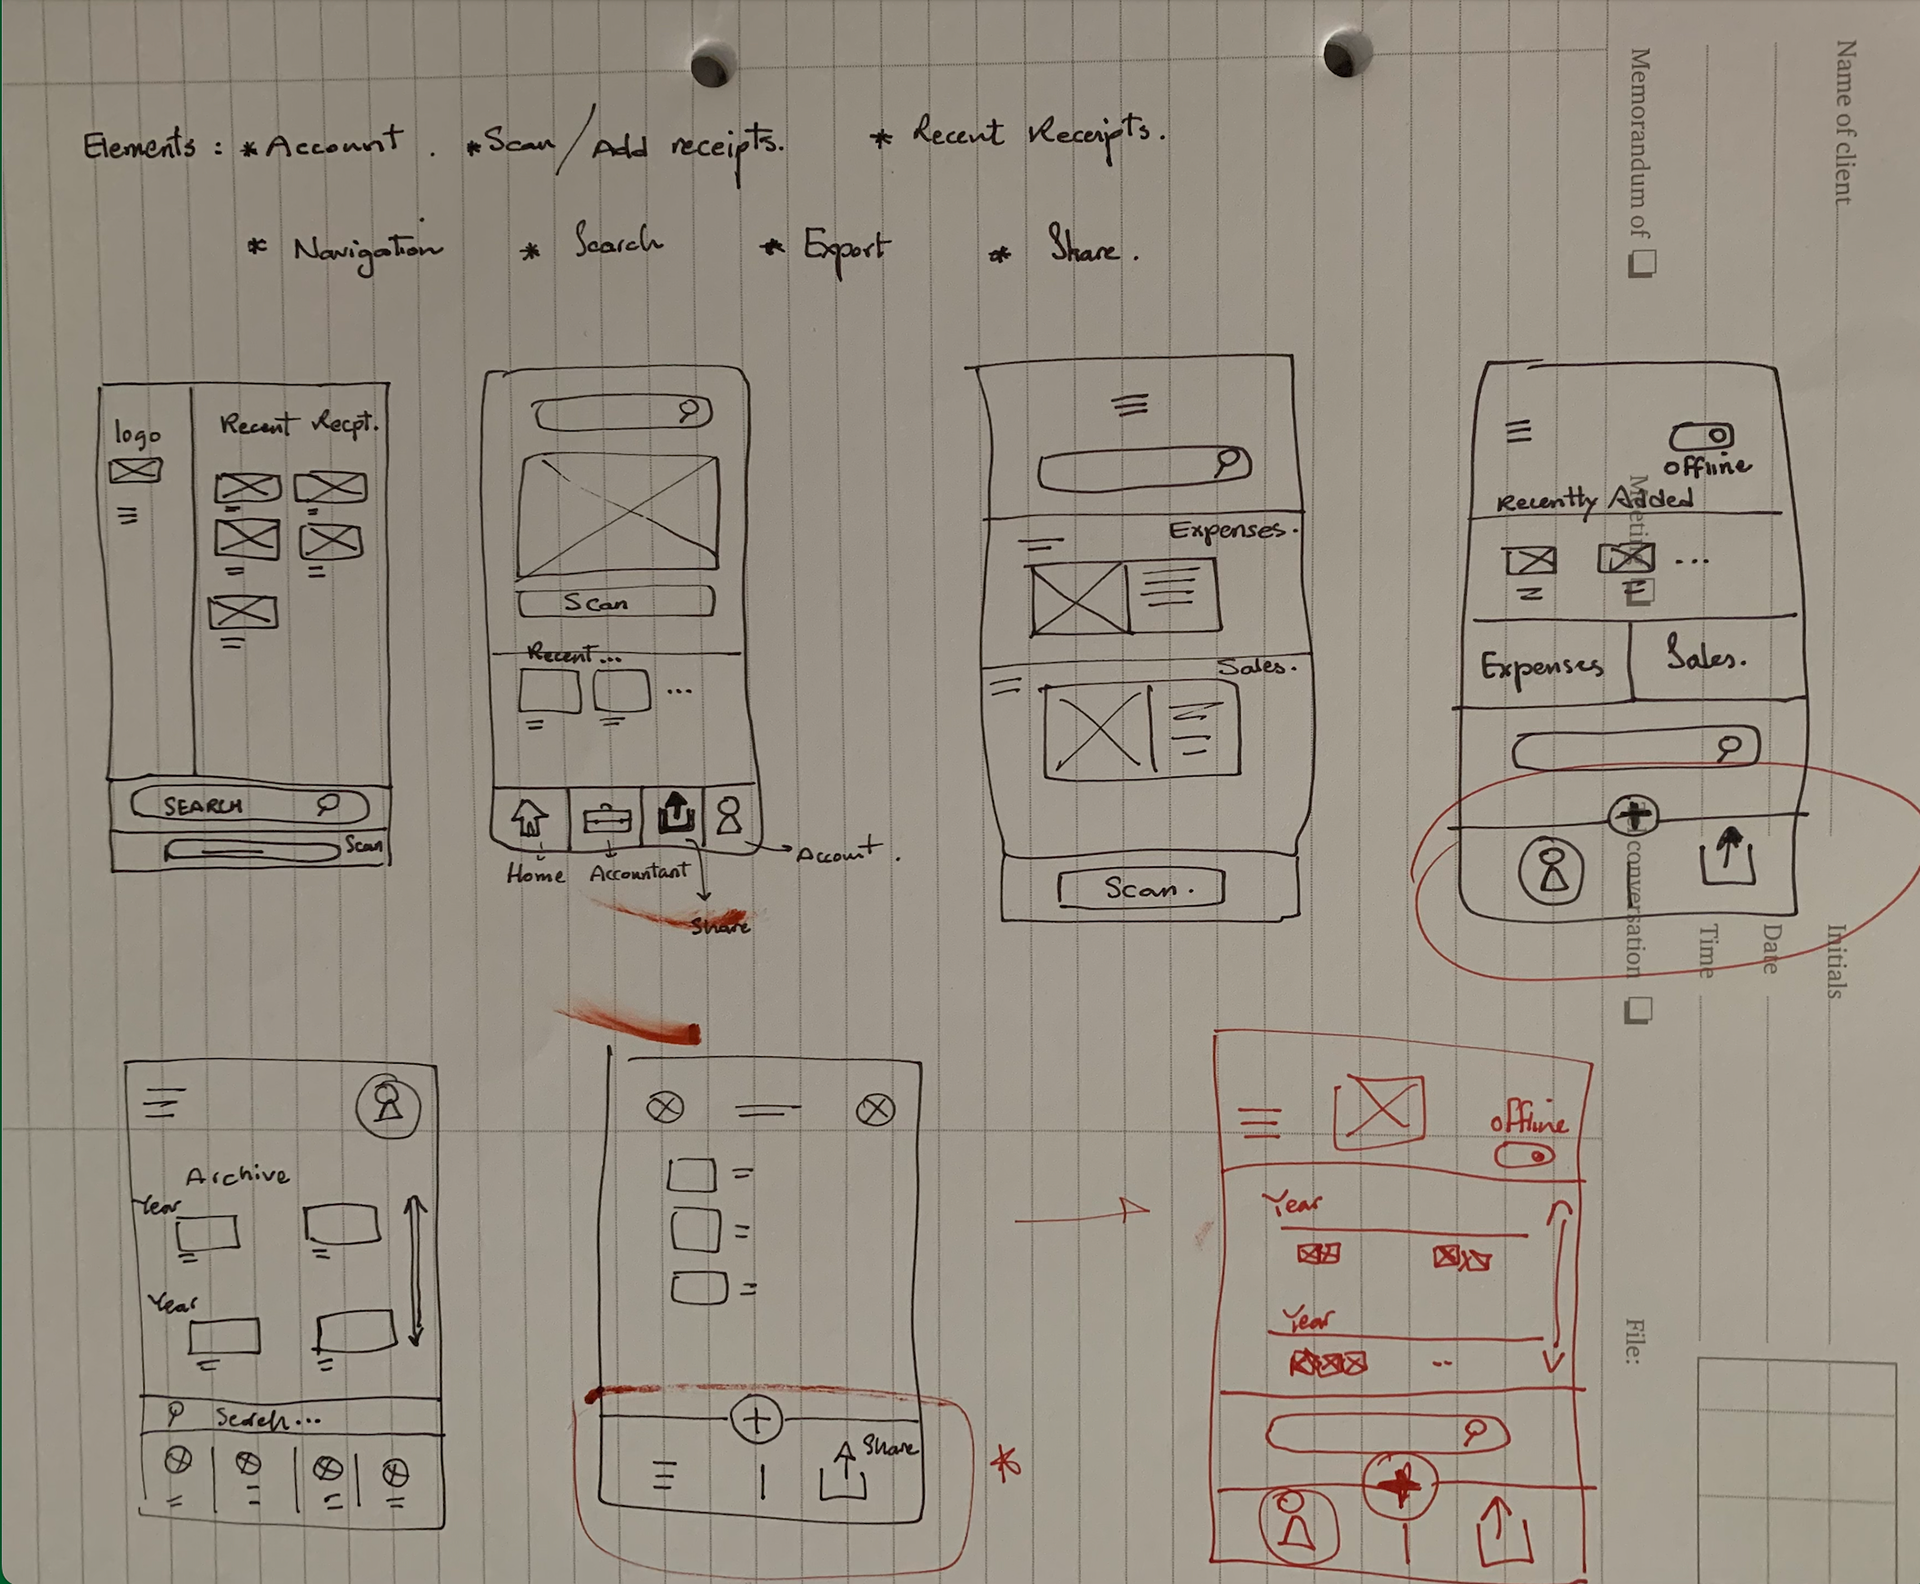 Name of client
Memorandum of
Elements : * Account . * Scan / Add receipts. * Recent Receipts.
* Navigation * Search * Export * Share .
logo
Recent Recpt.
SEARCH
Scan
Scan
Recent ...
Home Accountant
Account .
Share
Expenses.
Sales.
Scan .
Offline
Recently Added
...
Expenses
Sales.
Meeting
conversation
Time
Date
Initials
Archive
Year
Year
Search...
Share
*
offline
Year
Year
..
File: